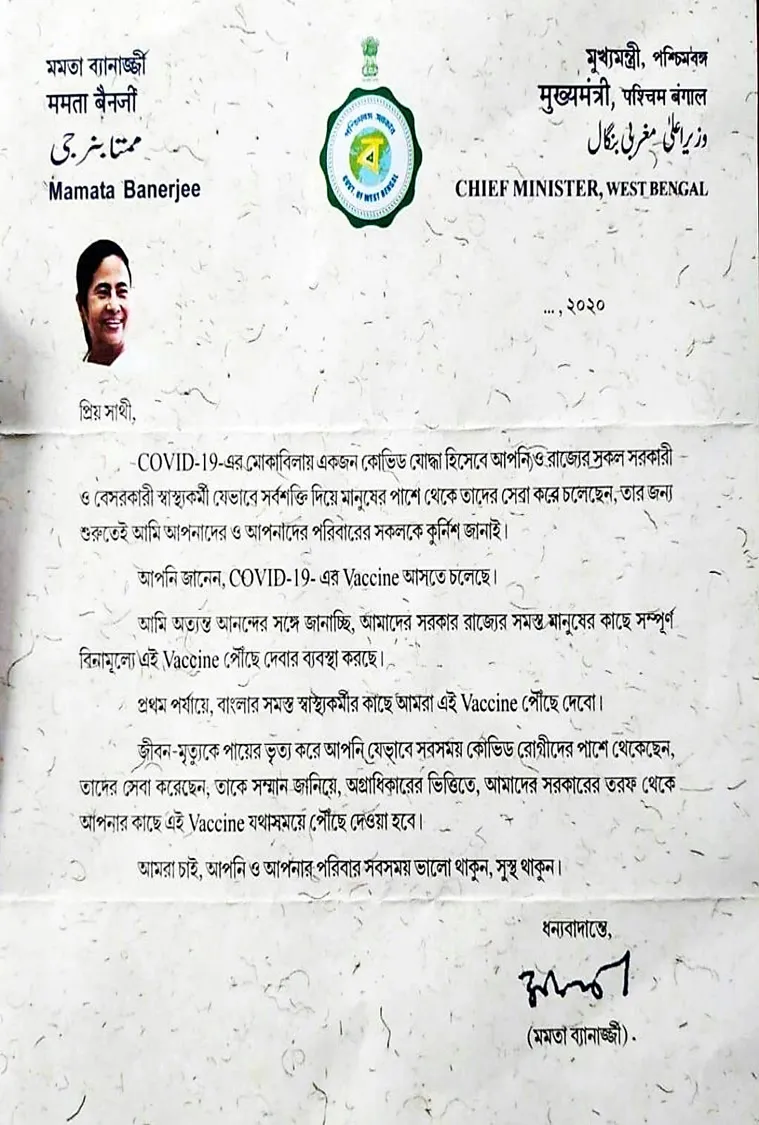 মমতা ব্যানার্জ্জী
ममता बैनर्जी
ممتا بنرجی
Mamata Banerjee
পশ্চিমবঙ্গ সরকার
ব
GOVT. OF WEST BENGAL
মুখ্যমন্ত্রী, পশ্চিমবঙ্গ
मुख्यमंत्री, पश्चिम बंगाल
وزیراعلیٰ مغربی بنگال
CHIEF MINISTER, WEST BENGAL
..., ২০২০
প্রিয় সাথী,
COVID-19-এর মোকাবিলায় একজন কোভিড যোদ্ধা হিসেবে আপনি ও রাজ্যের সকল সরকারী
ও বেসরকারী স্বাস্থ্যকর্মী যেভাবে সর্বশক্তি দিয়ে মানুষের পাশে থেকে তাদের সেবা করে চলেছেন, তার জন্য
শুরুতেই আমি আপনাদের ও আপনাদের পরিবারের সকলকে কুর্নিশ জানাই।
আপনি জানেন, COVID-19- এর Vaccine আসতে চলেছে।
আমি অত্যন্ত আনন্দের সঙ্গে জানাচ্ছি, আমাদের সরকার রাজ্যের সমস্ত মানুষের কাছে সম্পূর্ণ
বিনামূল্যে এই Vaccine পৌঁছে দেবার ব্যবস্থা করছে।
প্রথম পর্যায়ে, বাংলার সমস্ত স্বাস্থ্যকর্মীর কাছে আমরা এই Vaccine পৌঁছে দেবো।
জীবন-মৃত্যুকে পায়ের ভৃত্য করে আপনি যেভাবে সবসময় কোভিড রোগীদের পাশে থেকেছেন,
তাদের সেবা করেছেন, তাকে সম্মান জানিয়ে, অগ্রাধিকারের ভিত্তিতে, আমাদের সরকারের তরফ থেকে
আপনার কাছে এই Vaccine যথাসময়ে পৌঁছে দেওয়া হবে।
আমরা চাই, আপনি ও আপনার পরিবার সবসময় ভালো থাকুন, সুস্থ থাকুন।
ধন্যবাদান্তে,
মমতা
(মমতা ব্যানার্জ্জী).